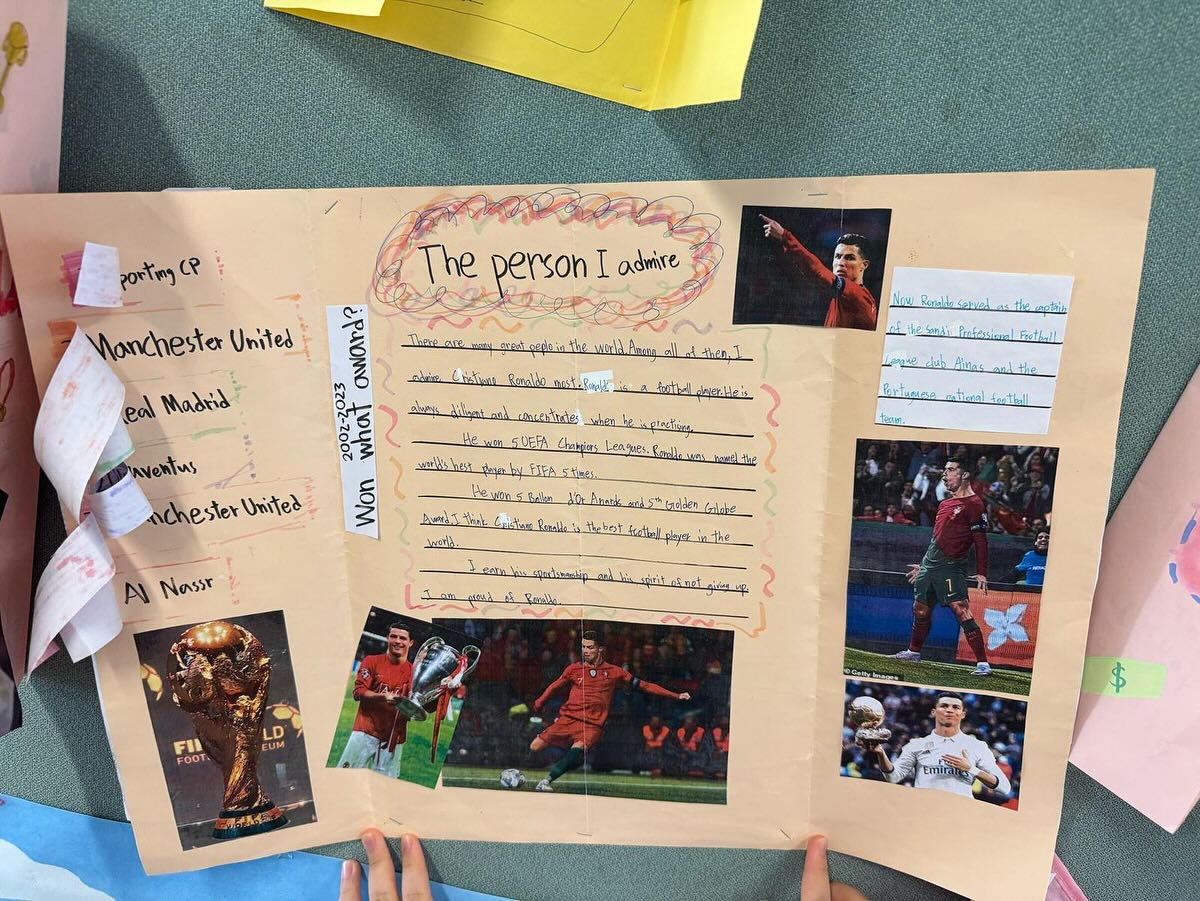 The person I admire
porting CP
Manchester United
eal Madrid
uventus
nchester United
Al Nassr
2002-2023
Won what award?
There are many great peplo in the world. Among all of then, I
admire Cristiano Ronaldo most. Ronald is a football player. He is
always dilligent and concentrates when he is practiong.
He won 5 UEFA Champions Leagues. Ronaldo was named the
world's best player by FIFA 5 times.
He won 5 Ballon d'Or Anards and 5th Golden Gilobe
Award. I think Cristiano Ronaldo is the best football player in the
world.
I earn his sportsmanship and his spirit of not giving up.
I am proud of Ronaldo.
Now Ronaldo served as the captain
of the Sandi Professional Football
League club Alnas and the
Portuguese national football
team.
FI LD
FOOT EUM
FIFA
7
© Getty Images
Fly
Emirates
$